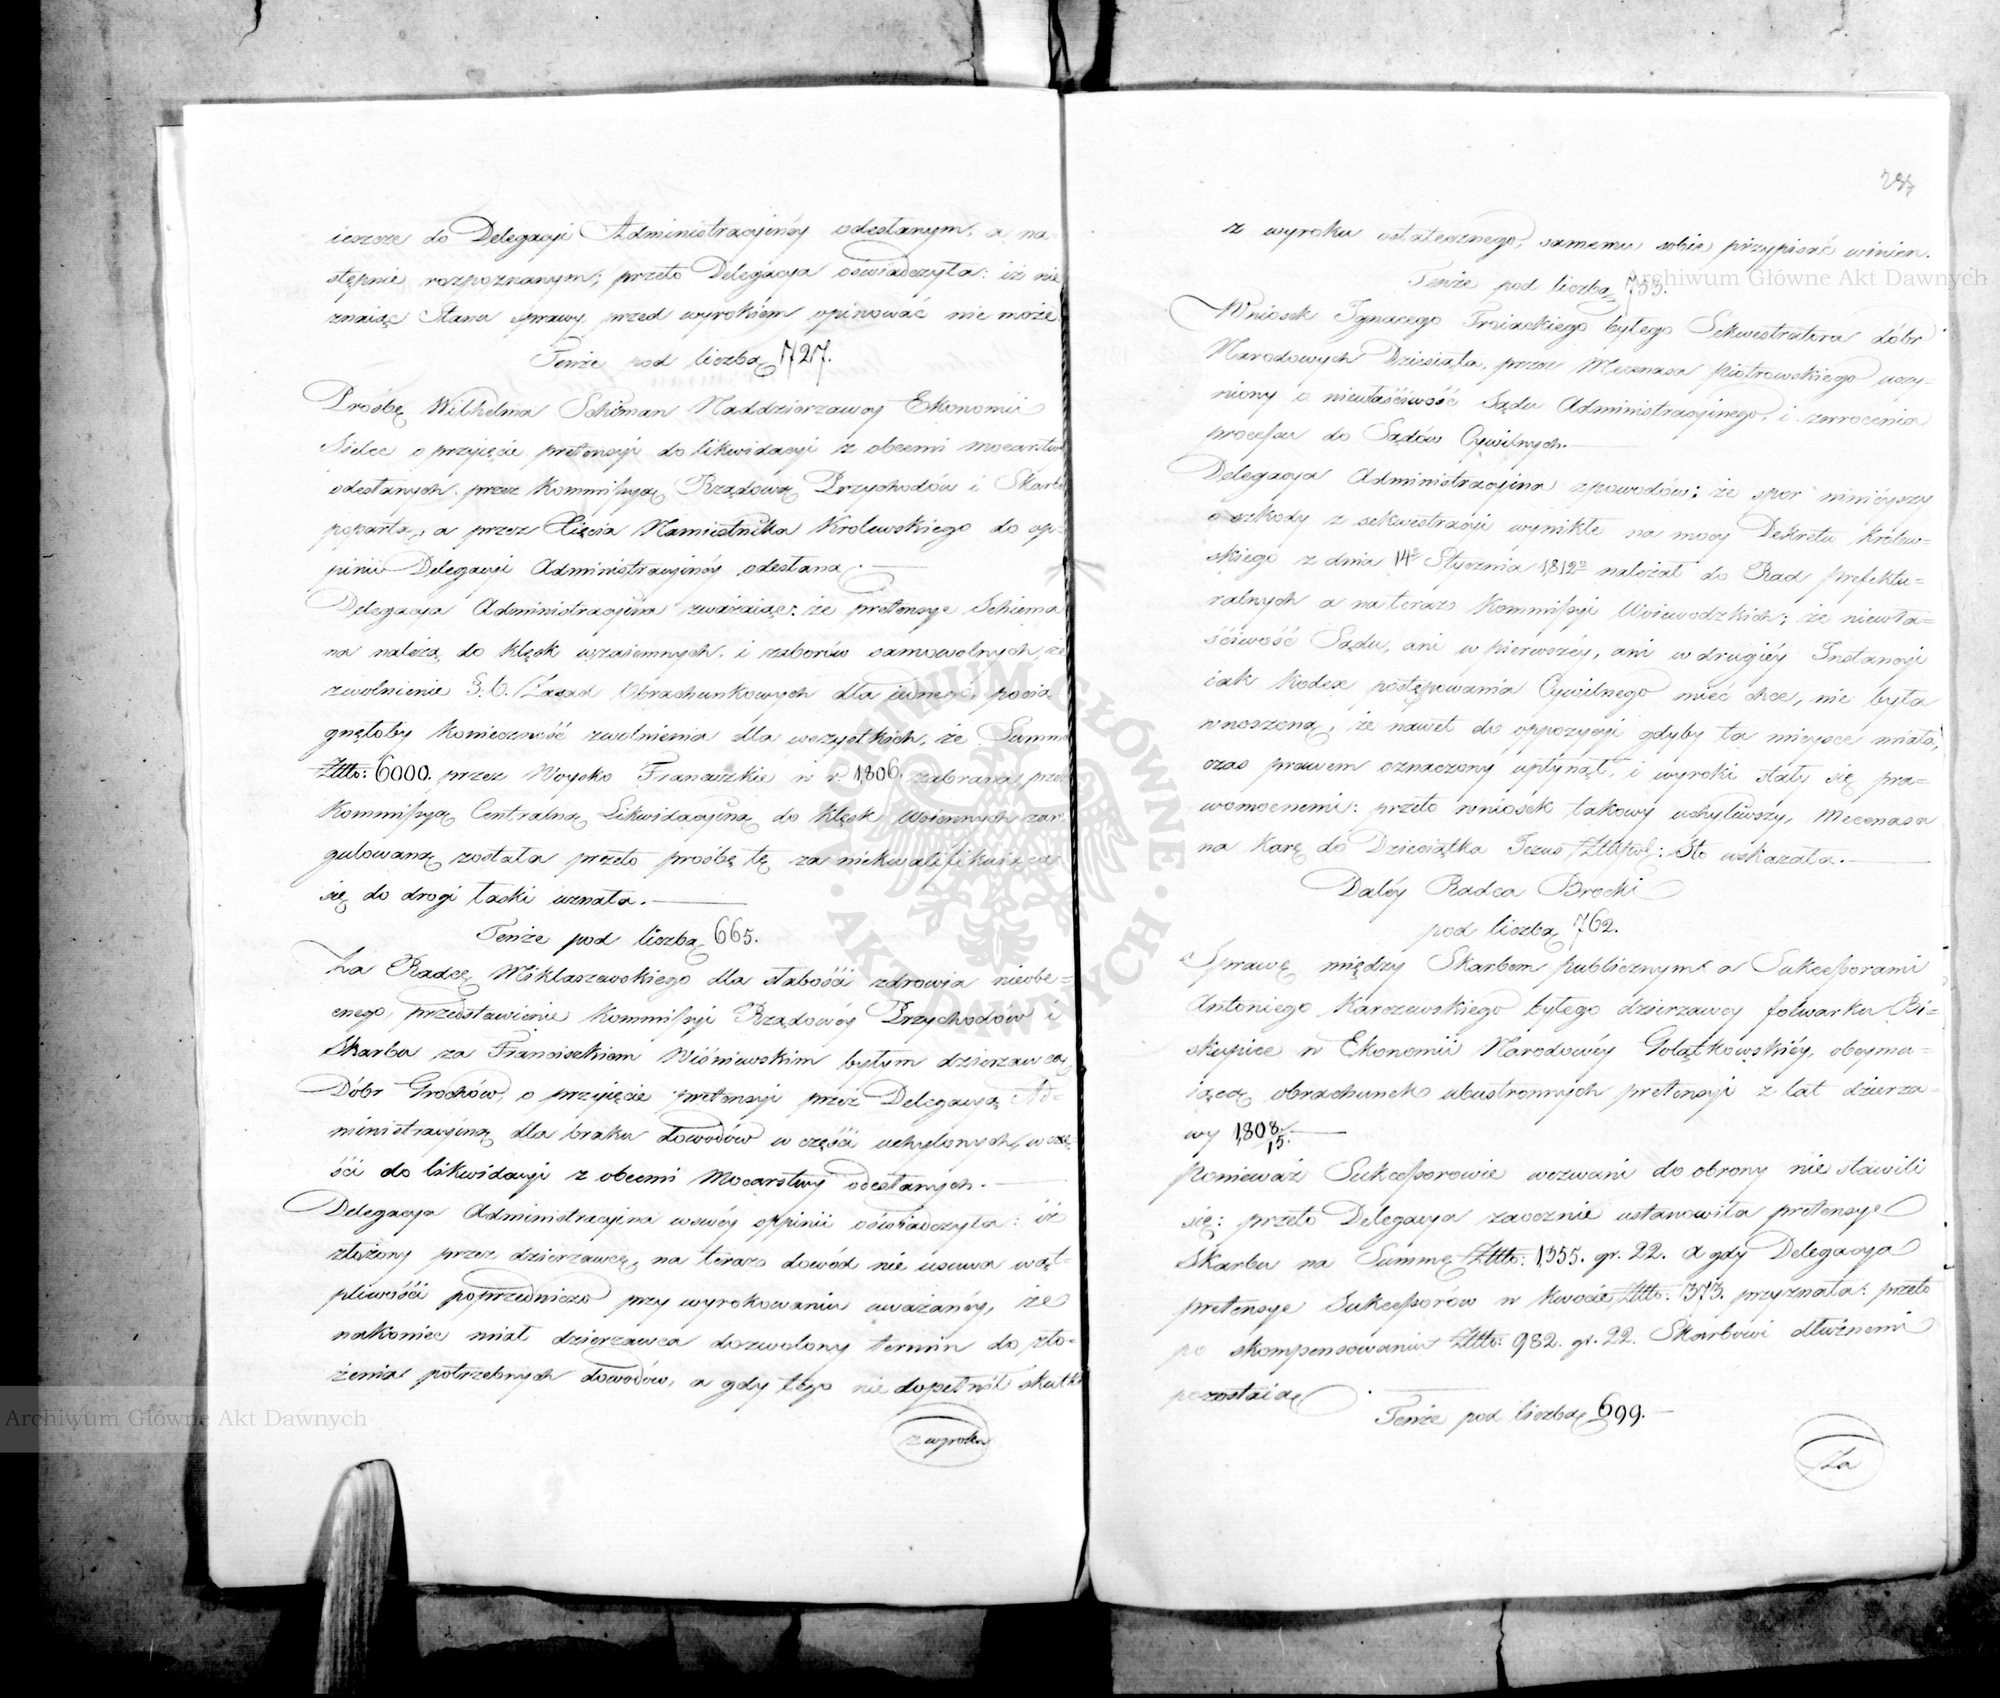 ieszcze do Delegacyi Administracyinéy odesłanym, a na
stępnie rozpoznanym; przeto Delegacya oświadczyła: iż nie
znaiąc Stanu sprawy przed wyrokiem opiniować nie może
Tenże pod liczbą 727.
Prośbę Wilhelma Schöman Naddzierzawcy Ekonomii
Sielce o przyięcie pretensyi do likwidacyi z obcemi mocarstw
odesłanych, przez Kommissyą Rządową Przychodów i Skarbu
poparta, a przez Xięcia Namiestnika Królewskiego do op=
pinii Delegacyi Administracyinéy odesłana.
Delegacya Administracyina zważaiąc: że pretensye Schöma
na należą do klęsk wzaiemnych i zaborów samowolnych, że
zwolnienie §. 6. Zasad Obrachunkowych dla iednego, pocią
gnęłoby konieczność zwolnienia dla wszystkich, że Summa
Złto: 6000. przez Woysko Francuzkie w r. 1806. zabrana, przez
Kommissyą Centralną Likwidacyiną do klęsk Woiennych zare
gulowaną została przeto prośbę tę za niekwalifikuiącą
się do drogi łaski uznała.
Tenże pod liczbą 665.
Za Radcę Miklaszewskiego dla słabości zdrowia nieobe=
cnego, przedstawienie Kommissyi Rządowéy Przychodów i
Skarbu za Franciszkiem Wiśniewskim byłym dzierzawcą
Dóbr Grochów, o przyięcie pretensyi przez Delegacyą Ad=
ministracyiną dla braku dowodów w części uchylonych, w czę
ści do likwidacyi z obcemi Mocarstwy odesłanych.
Delegacya Administracyina w swéy oppinii oświadczyła: iż
złożony przez dzierzawcę, na teraz dowód nie usuwa wąt=
pliwości poprzedniczo przy wyrokowaniu uważanéy, że
nakoniec miał dzierzawca dozwolony termin do zło=
żenia potrzebnych dowodów, a gdy tego nie dopełnił skutki
z wyroku
z wyroku ostatecznego, samemu sobie przypisać winien.
Tenże pod liczbą 753.
Wniosek Ignacego Troiackiego byłego Sekwestratora dóbr
Narodowych Dzisiała, przez Mecenasa Piotrowskiego uczy=
niony o niewłaściwość Sądu Administracyinego, i zwrocenia
processu do Sądów Cywilnych.
Delegacya Administracyina z powodów: że spor ninieyszy
o szkody z sekwestracyi wynikłe na mocy Dekretu Królew=
skiego z dnia 14go Stycznia 1812 r. należał do Rad prefektu=
ralnych a na teraz Kommissyi Woiewodzkich; że niewła=
ściwość Sądu, ani w pierwszéy, ani w drugiéy Instancyi
iak Kodex postępowania Cywilnego mieć chce, nie była
wnoszoną, że nawet do oppozycyi gdyby ta mieysce miała,
czas prawem oznaczony upłynął, i wyroki stały się pra=
womocnemi: przeto wniosek takowy uchyliwszy, Mecenasa
na karę do Dzieciątka Jezus Złtpol: Sto wskazała.
Daléy Radca Brocki
pod liczbą 762.
Sprawę między Skarbem publicznym a Sukcessorami
Antoniego Karczewskiego byłego dzierzawcy folwarku Bi=
skupice w Ekonomii Narodowéy Gołątkowskiéy, obeymu=
iącą obrachunek obustronnych pretensyi z lat dzierza=
wy 1808/15.
Ponieważ Sukcessorowie wezwani do obrony nie stawili
się: przeto Delegacya zaocznie ustanowiła pretensye
Skarbu na Summę Złto: 1355. gr. 22. a gdy Delegacya
pretensye Sukcessorów w kwocie Złto: 373. przyznała: przeto
po skompensowaniu Złto: 982. gr. 22. Skarbowi dłużnemi
pozostaią.
Tenże pod liczbą 699.
Za
Archiwum Główne Akt Dawnych
Archiwum Główne Akt Dawnych
ARCHIWUM GŁÓWNE AKT DAWNYCH